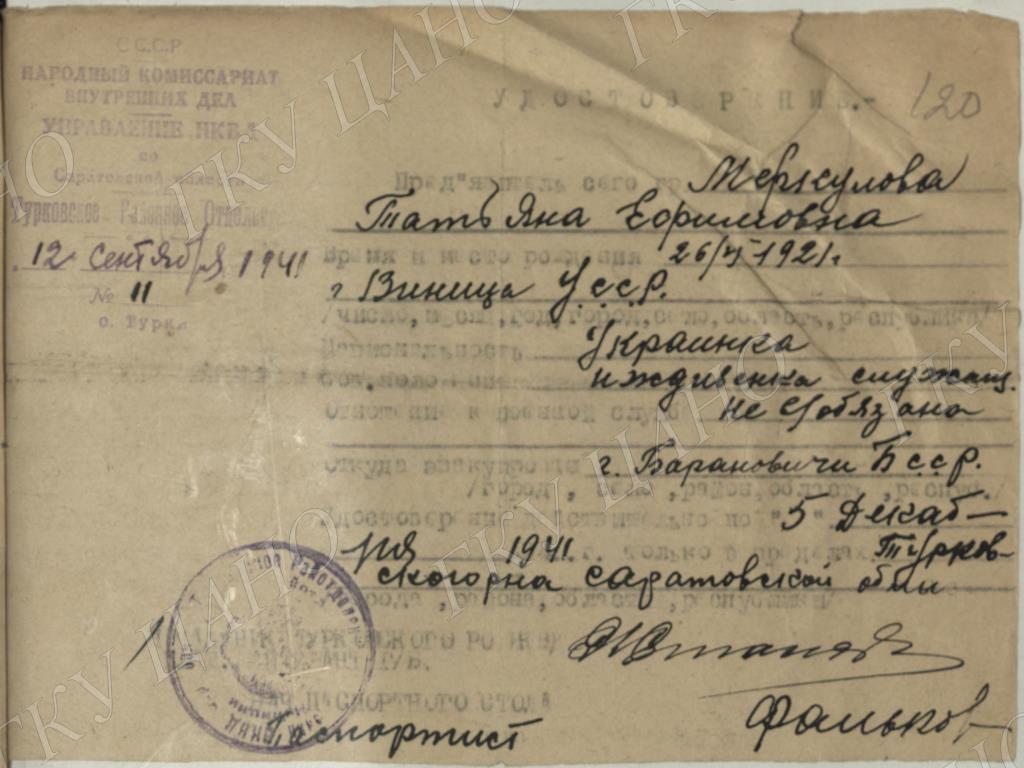 С.С.С.Р.
НАРОДНЫЙ КОМИССАРИАТ
ВНУТРЕННИХ ДЕЛ
УПРАВЛЕНИЕ НКВД
по
Саратовской области
Турковское Районное Отделен
12 сентября 1941
№ 11
с. Турки
120
УДОСТОВЕРЕНИЕ.-
Пред"явитель сего гр. Меркулова
Татьяна Ефимовна
Время и место рождения 26/V-1921г
г Виница УССР.
/число, м-сяц, год, город, село, область, республика/
Национальность Украинка
иждивенка служащ.
Отношение к военной служб не в/обязана
Откуда эвакуирован г. Барановичи БССР.
/город, село, район, область, респуб./
Удостоверение действительно по "5" Декаб-
ря 1941 г. только в пределах Турков-
ского р-на Саратовской обл
города, района, область, республики/
ТУРКОВСКОГО РО НКВД
НАЧ ПАСПОРТНОГО СТОЛА
Паспортист Фальков
ГКУ ЦАНО